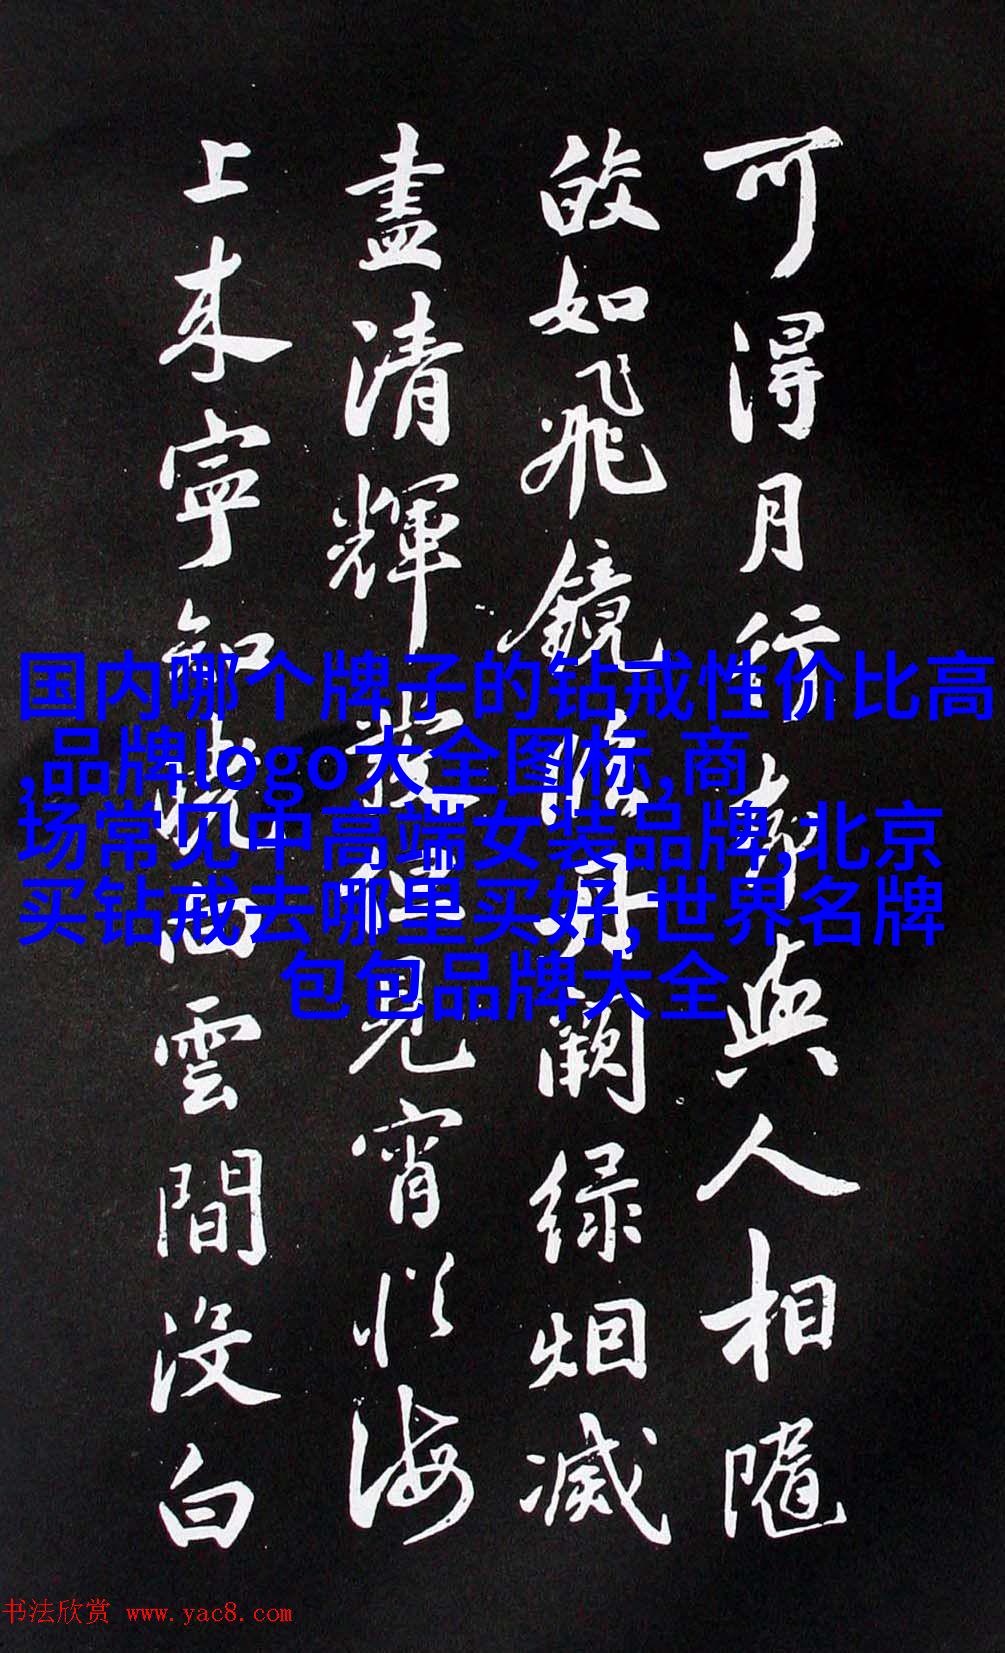 可得月行却與人相隨
皎如飛鏡臨丹闕绿烟滅
盡清輝發但見宵從海
上来寧知曉向雲間沒白
国内哪个牌子的钻戒性价比高
,品牌logo大全图标,商
场常见中高端女装品牌,北京
买钻戒去哪里买好,世界名牌
包包品牌大全
书法欣赏 www.yac8.com